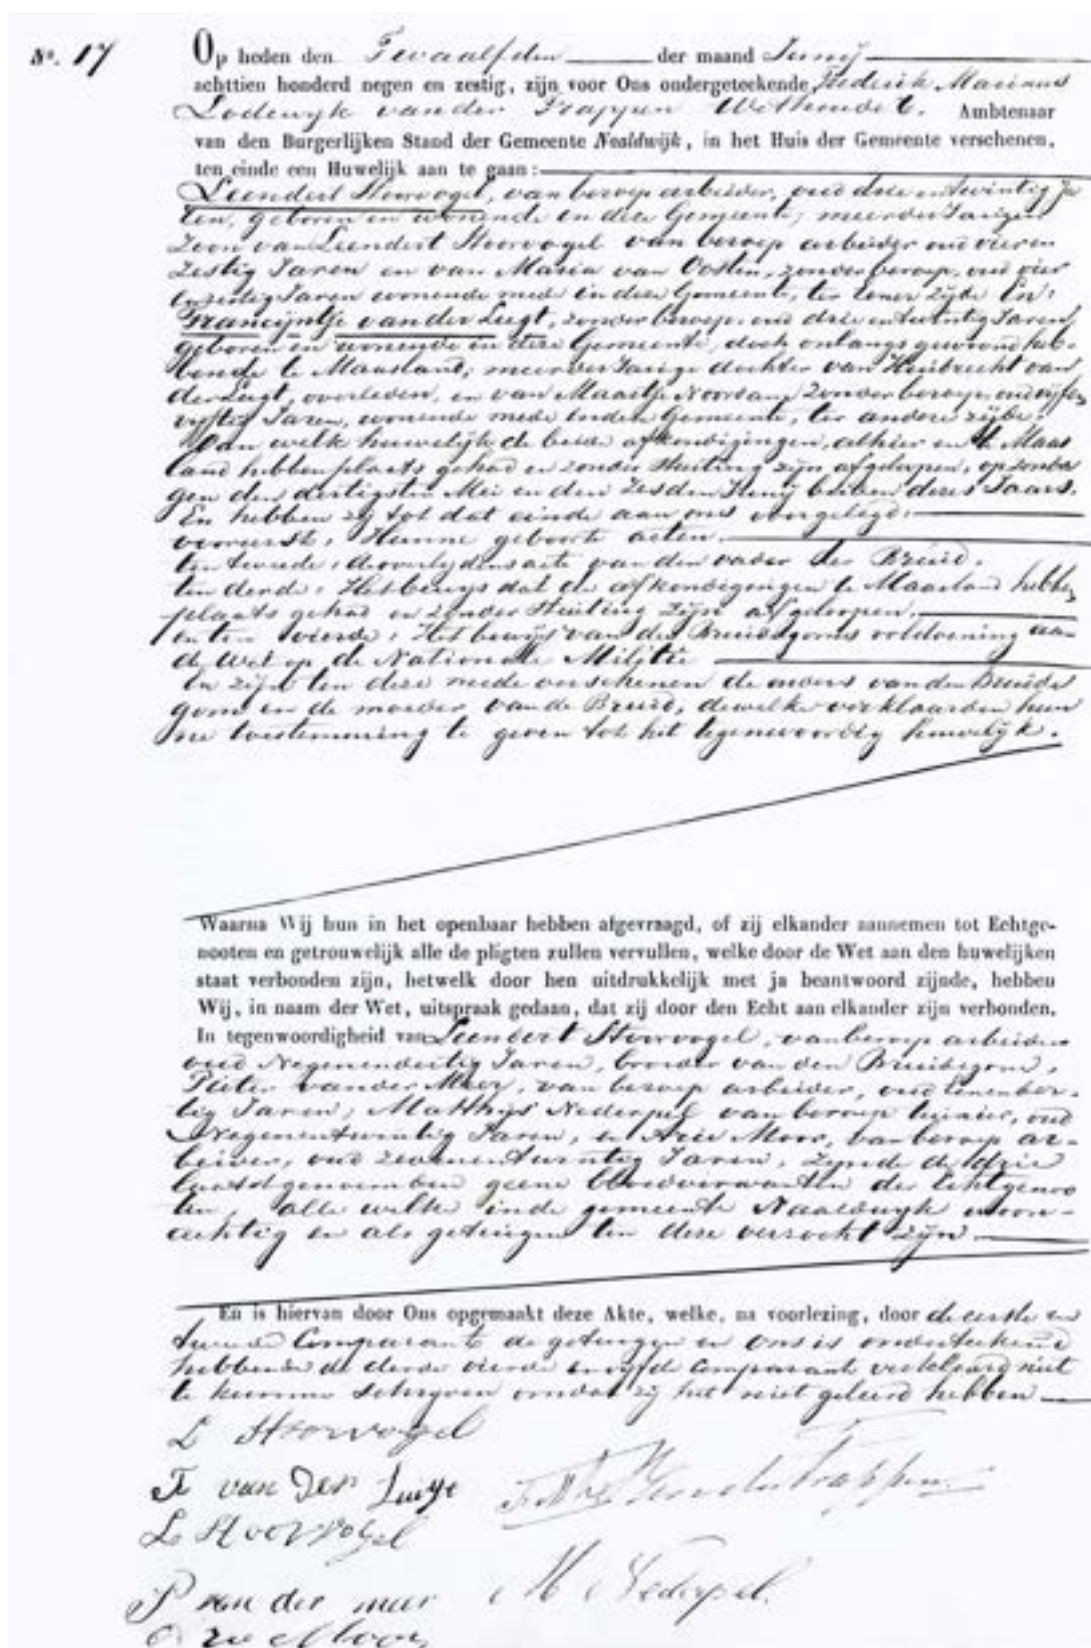 No. 17
Op heden den Twaalfden der maand Junij
achttien honderd negen en zestig, zijn voor Ons ondergeteekende Frederik Marinus
Lodewyk van der Trappen Wethouder. Ambtenaar
van den Burgerlijken Stand der Gemeente Naaldwijk, in het Huis der Gemeente verschenen,
ten einde een Huwelijk aan te gaan:
Leendert Stoorvogel, van beroep arbeider, oud drie en twintig Ja
ren, geboren en wonende in deze Gemeente, meerderjarigen
Zoon van Leendert Stoorvogel van beroep arbeider oud vier en
Zestig Jaren en van Maria van Oosten, zonder beroep, oud vier
en zestig Jaren wonende mede in deze Gemeente, ter eener zijde En:
Francijntje van der Lugt, zonder beroep, oud drie en twintig Jaren,
geboren en wonende in deze Gemeente, doch onlangs gewoond heb-
bende te Maasland, meerderjarige dochter van Huibrecht van
der Lugt, overleden, en van Maartje Noordam, zonder beroep, oud vijf en
vyftig Jaren, wonende mede in deze Gemeente, ter andere zijde.
Van welk huwelijk de beide afkondigingen, alhier en te Maas
land hebben plaats gehad en zonder stuiting zijn afgeloopen, op zonda
gen den dertigsten Mei en den Zesden Junij beiden dezes Jaars.
En hebben zij tot dat einde aan ons overgelegd:
vooreerst, Hunne geboorte acten.
ten tweede, de overlydensacte van den vader der Bruid.
ten derde, Het bewys dat de afkondigingen te Maasland hebben
plaats gehad en zonder Stuiting zijn afgeloopen.
en ten vierde, Het bewijs van des Bruidegoms voldoening aan
de Wet op de Nationale Militie
En zijn ten deze mede verschenen de ouders van den Bruide
gom en de moeder van de Bruid, dewelke verklaarden hun
ne toestemming te geven tot het tegenwoordig huwelyk.
Waarna Wij hun in het openbaar hebben afgevraagd, of zij elkander aannemen tot Echtge-
nooten en getrouwelijk alle de pligten zullen vervullen, welke door de Wet aan den huwelijken
staat verbonden zijn, hetwelk door hen uitdrukkelijk met ja beantwoord zijnde, hebben
Wij, in naam der Wet, uitspraak gedaan, dat zij door den Echt aan elkander zijn verbonden.
In tegenwoordigheid van Leendert Stoorvogel, van beroep arbeider
oud Negenendertig Jaren, broeder van den Bruidegom,
Pieter van der Meer, van beroep arbeider, oud
tig Jaren, Matthijs Nederpel van beroep oud
Negenentwintig Jaren, en Arie Moor, van beroep ar-
beider, oud zevenentwintig Jaren, Zynde de drie
laatstgenoemden geene bloedverwanten der Echtgenoo
ten, alle welke in de gemeente Naaldwyk woon-
achtig en als getuigen ten deze verzocht zijn
En is hiervan door Ons opgemaakt deze Akte, welke, na voorlezing, door de eerste en
tweede Comparante de getuigen en ons is onderteekend
hebbende de derde vierde en vyfde Comparant verklaard niet
te kunnen schryven omdat zij het niet geleerd hebben
L Stoorvogel
F van der Lugt
L Stoorvogel
P van der meer M Nederpel.
Arie Moor